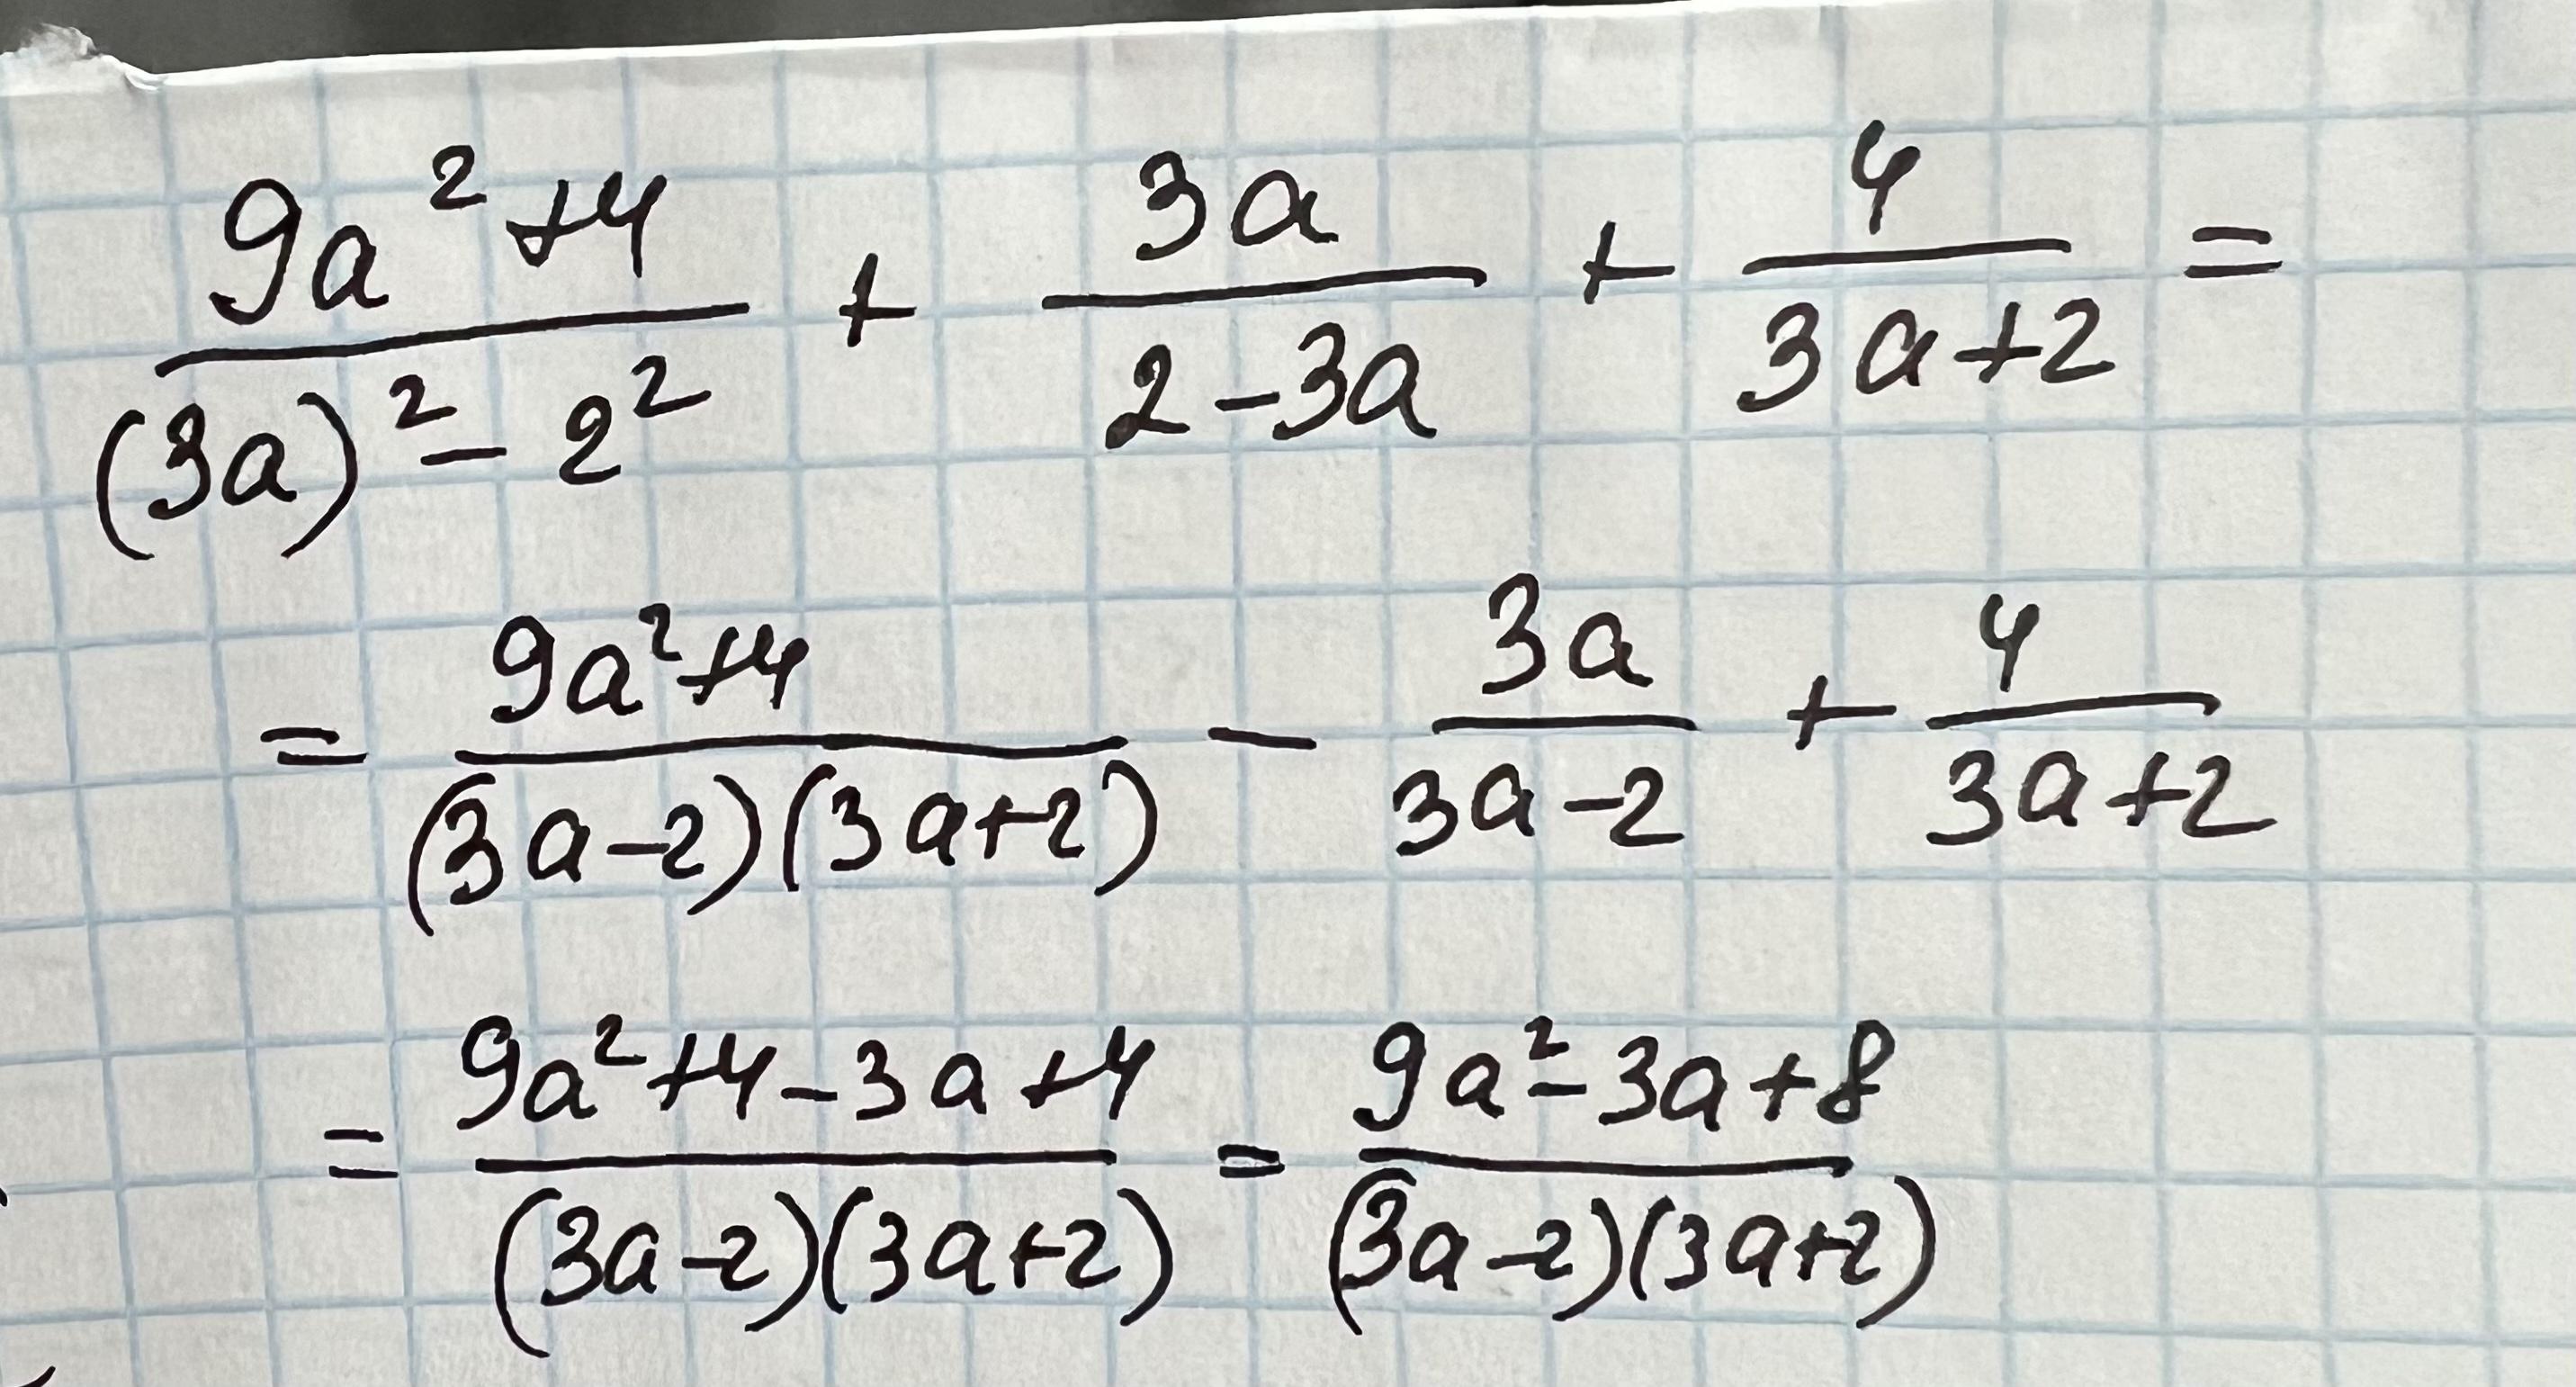 (9a² + 4)/((3a)² - 2²) + 3a/(2 - 3a) + 4/(3a + 2) =
= (9a² + 4)/((3a - 2)(3a + 2)) - 3a/(3a - 2) + 4/(3a + 2)
= (9a² + 4 - 3a + 4)/((3a - 2)(3a + 2)) = (9a² - 3a + 8)/((3a - 2)(3a + 2))